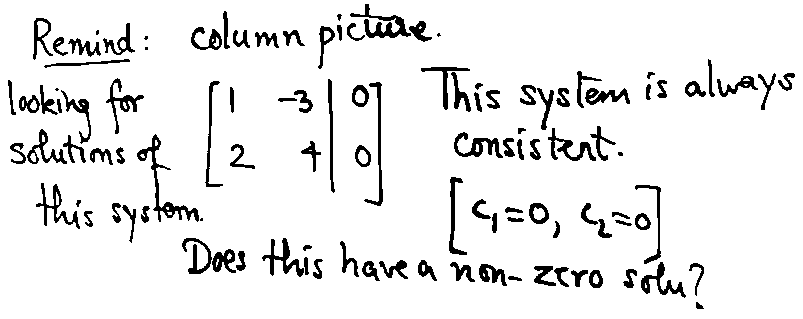 Remind: column picture.
looking for solutions of this system.
[ 1 -3 | 0
2 4 | 0 ]
This system is always
consistent.
[c₁=0, c₂=0]
Does this have a non-zero solu?